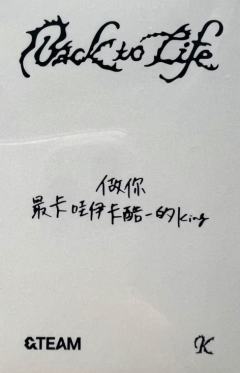 Back to Life
做你
最卡哇伊卡酷一的King
&TEAM
K